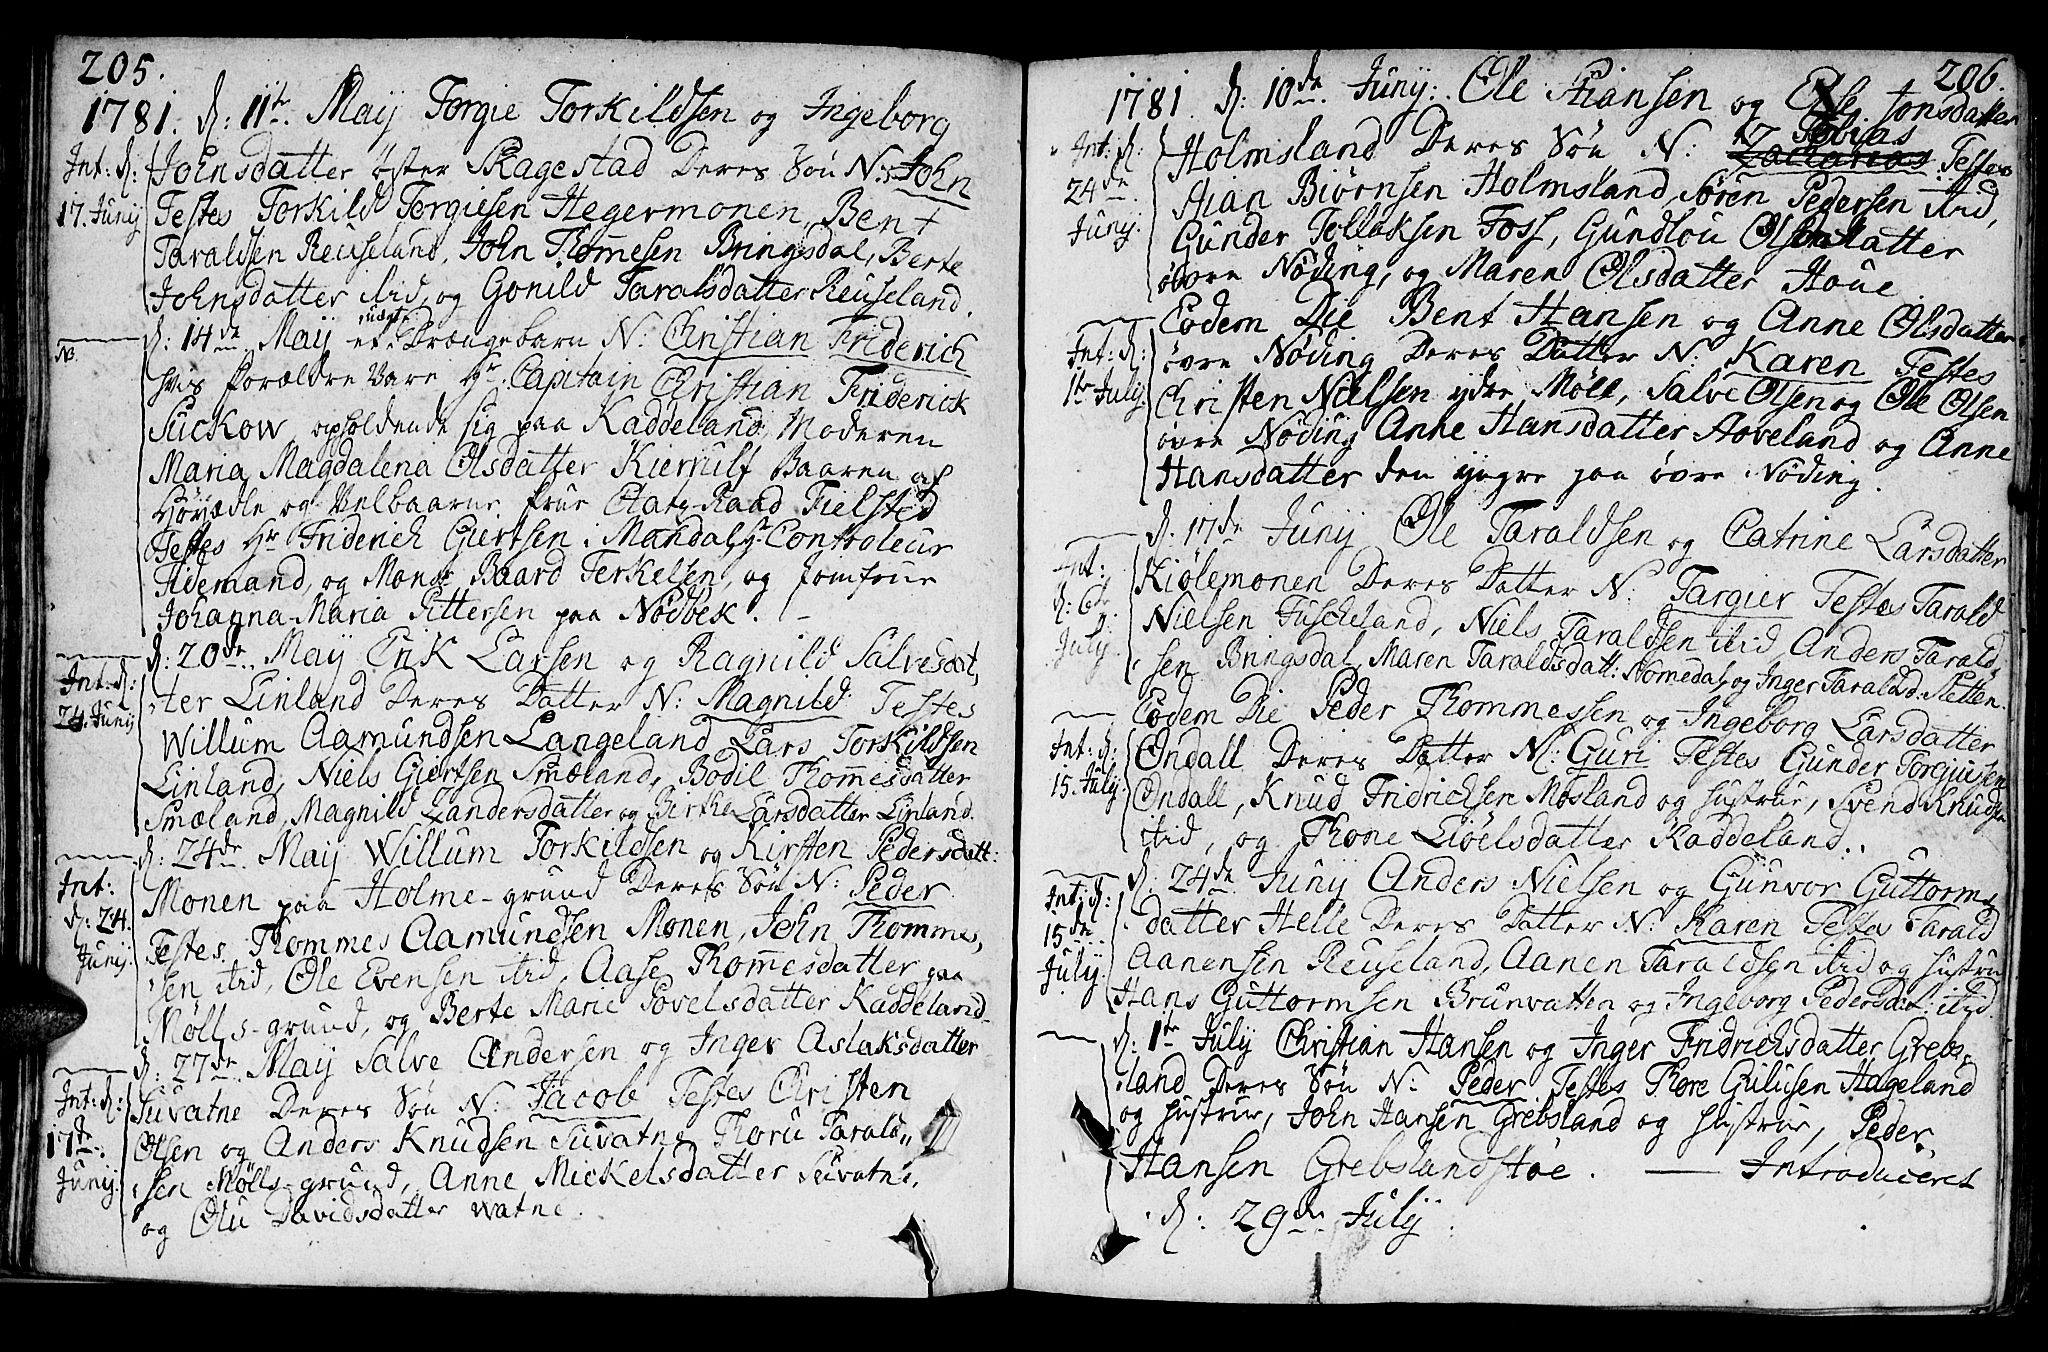 205.
1781. d: 11te Maij Torgie Torkildsen og Ingeborg
Int: d:
17. Junij
Johnsdatter öster Skagestad Deres Søn N: John
Testes Torkild Torgiesen Hegermonen, Bent
Taraldsen Reuseland, John Thommesen Bringsdal, Berte
Johnsdatter ibid, og Gonild Taralsdatter Reuseland.
d: 14de Maij et Drængebarn N: Christian Friderich
hvis forældre vare Hr. Capitain Christian Friderick
Suckow opholdende sig paa Kaddeland, Moderen
Maria Magdalena Olsdatter Kierrulf Baaren af
Høyædle og Velbaarne frue Etatz-Raad Fielsted
Testes Hr Friderich Giertsen i Mandal, Hr Controleur
Tidemand, og Mons: Baard Terkelsen, og jomfrue
Johanna Maria Pittersen paa Nødbek.
d: 20de Maij Erik Larsen og Ragnild Salvesdat,
Int: d:
24. Junij
ter Linland Deres Datter N: Magnild Testes
Willum Aamundsen Langeland Lars Torkildsen
Linland, Niels Giertsen Smæland, Bodil Thommesdatter
Smæland, Magnild Zandersdatter og Berthe Larsdatter Linland.
d: 24de Maij Willum Torkildsen og Kirsten Pedersdatt:
Int:
d: 24.
Junij.
Monen paa Holme-grund Deres Søn N: Peder
Testes, Thommes Aamundsen Monen, John Thommes,
sen ibid, Ole Evensen ibid, Aase Thommesdatter paa
Mølls-grund, og Berte Marie Povelsdatter Kaddeland
d: 27de Maij Salve Andersen og Inger Aslaksdatter
Int: d:
17de
Junij.
Suvatne Deres Søn N: Jacob Testes Christen
Olsen og Anders Knudsen Suvatne Thoru Tarald,,
sen Mølls-grund, Anne Mickelsdatter Suvatne,
og Olu Davidsdatter watne.
206.
1781 d: 10de Junij: Ole Stiansen og Else Jonsdatter
Int: d:
24de
Junij.
Holmsland Deres Søn N: Tobias Zacharias Testes
Stian Biørnsen Holmsland, Søren Pedersen ibid,
Gunder Tollaksen Foss, Gundlou Olsdatter
övre Nøding, og Maren Olsdatter Houe
Eodem Die Bent Hansen og Anne Olsdatter
Int: d:
1te July.
övre Nøding Deres Datter N: Karen Testes
Christen Nielsen ydre Møll, Salve Olsen og Ole Olsen
övre Nøding Anne Hansdatter Aaveland og Anne
Hansdatter den yngre paa övre Nøding.
d: 17de Junij Ole Taraldsen og Catrine Larsdatter
Int:
d: 6te
July
Kiølemonen Deres Datter N: Targier Testes Tarald
Nielsen Fuskeland, Niels Taraldsen ibid Anders Tarald,
sen Bringsdal, Maren Taraldsdatt: Nomedal, og Inger Taraldsd: Sletten.
Eodem Die Peder Thommessen og Ingeborg Larsdatter
Int: d:
15. July.
Ondall Deres Datter N: Guri Testes Gunder Torgjusen
Ondall, Knud Fridrichsen Møsland og hustrue, Svend Knudsen
ibid, og Thone Lióelsdatter Kaddeland.
d: 24de Junij Anders Nielsen og Gunvor Guttorms
Int: d:
15de
July.
datter Helle Deres Datter N: Karen Testes Tarald
Aanensen Reuseland, Aanen Taraldsen ibid og hustrue
Hans Guttormsen Brunvatten og Ingeborg Pedersdat: ibid.
d: 1te July Christian Hansen og Inger Fridrichsdatter Grebs,
land Deres Søn N: Peder Testes Thore Gulusen Hageland
og hustrue, John Hansen Grebsland og hustrue, Peder
Hansen Grebslandstøe. — Introduceret
d: 29de July